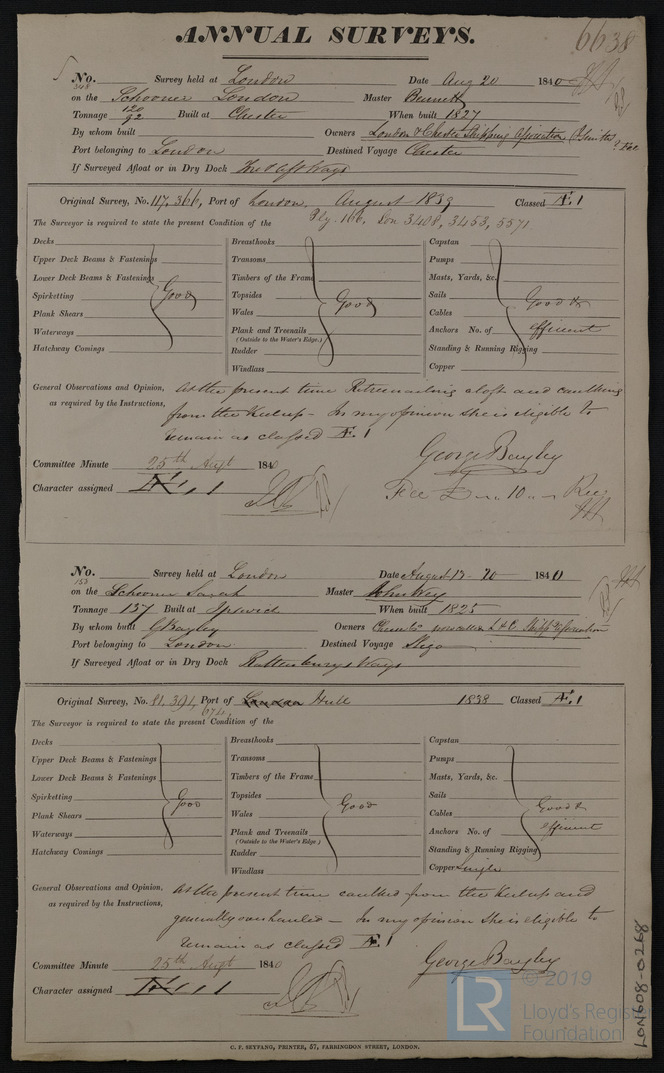 ANNUAL SURVEYS. 6638
No. 348 Survey held at London Date Aug 20 1840
on the Schooner London Master Bennett
Tonnage 120 92 Built at Chester When built 1827
By whom built Owners London & Chester Shipping
Port belonging to London Destined Voyage Chester
If Surveyed Afloat or in Dry Dock Ways
Original Survey, No. 366, Port of London August 1839 Classed Æ 1
Ply. 166. Lon 3408, 3453, 5571
The Surveyor is required to state the present Condition of the
Decks Breasthooks Capstan
Upper Deck Beams & Fastenings Transoms Pumps
Lower Deck Beams & Fastenings Timbers of the Frame Masts, Yards, &c.
Spirketting Good Topsides Good Sails Good &
Plank Shears Wales Cables
Waterways Plank and Treenails (Outside to the Water's Edge.) Anchors No. of efficient
Hatchway Comings Rudder Standing & Running Rigging
Windlass Copper
General Observations and Opinion, as required by the Instructions, At the present time Retreenailing aloft and caulking
from the Keel up – In my opinion she is eligible to
remain as classed Æ 1
George Bayley
Committee Minute 25th Augt 1840
Character assigned Æ 1
Fee £ 10
No. 153 Survey held at London Date August 13 - 20 1840
on the Schooner Sarah Master John Wey
Tonnage 157 Built at Ipswich When built 1825
By whom built G Bayley Owners
Port belonging to London Destined Voyage Sligo
If Surveyed Afloat or in Dry Dock Rattenburys Ways
Original Survey, No. 81, 391, Port of London Hull 1838 Classed Æ 1
The Surveyor is required to state the present Condition of the
Decks Breasthooks Capstan
Upper Deck Beams & Fastenings Transoms Pumps
Lower Deck Beams & Fastenings Timbers of the Frame Masts, Yards, &c.
Spirketting Good Topsides Good Sails Good &
Plank Shears Wales Cables
Waterways Plank and Treenails (Outside to the Water's Edge.) Anchors No. of efficient
Hatchway Comings Rudder Standing & Running Rigging
Windlass Copper Single
General Observations and Opinion, as required by the Instructions, At the present time caulked from the Keel up and
generally overhauled – In my opinion she is eligible to
remain as classed Æ 1
George Bayley
Committee Minute 25th Augt 1840
Character assigned Æ 1
C. F. SEYFANG, PRINTER, 57, FARRINGDON STREET, LONDON.
LR © 2019
Lloyd's Register
Foundation
LON608-0268